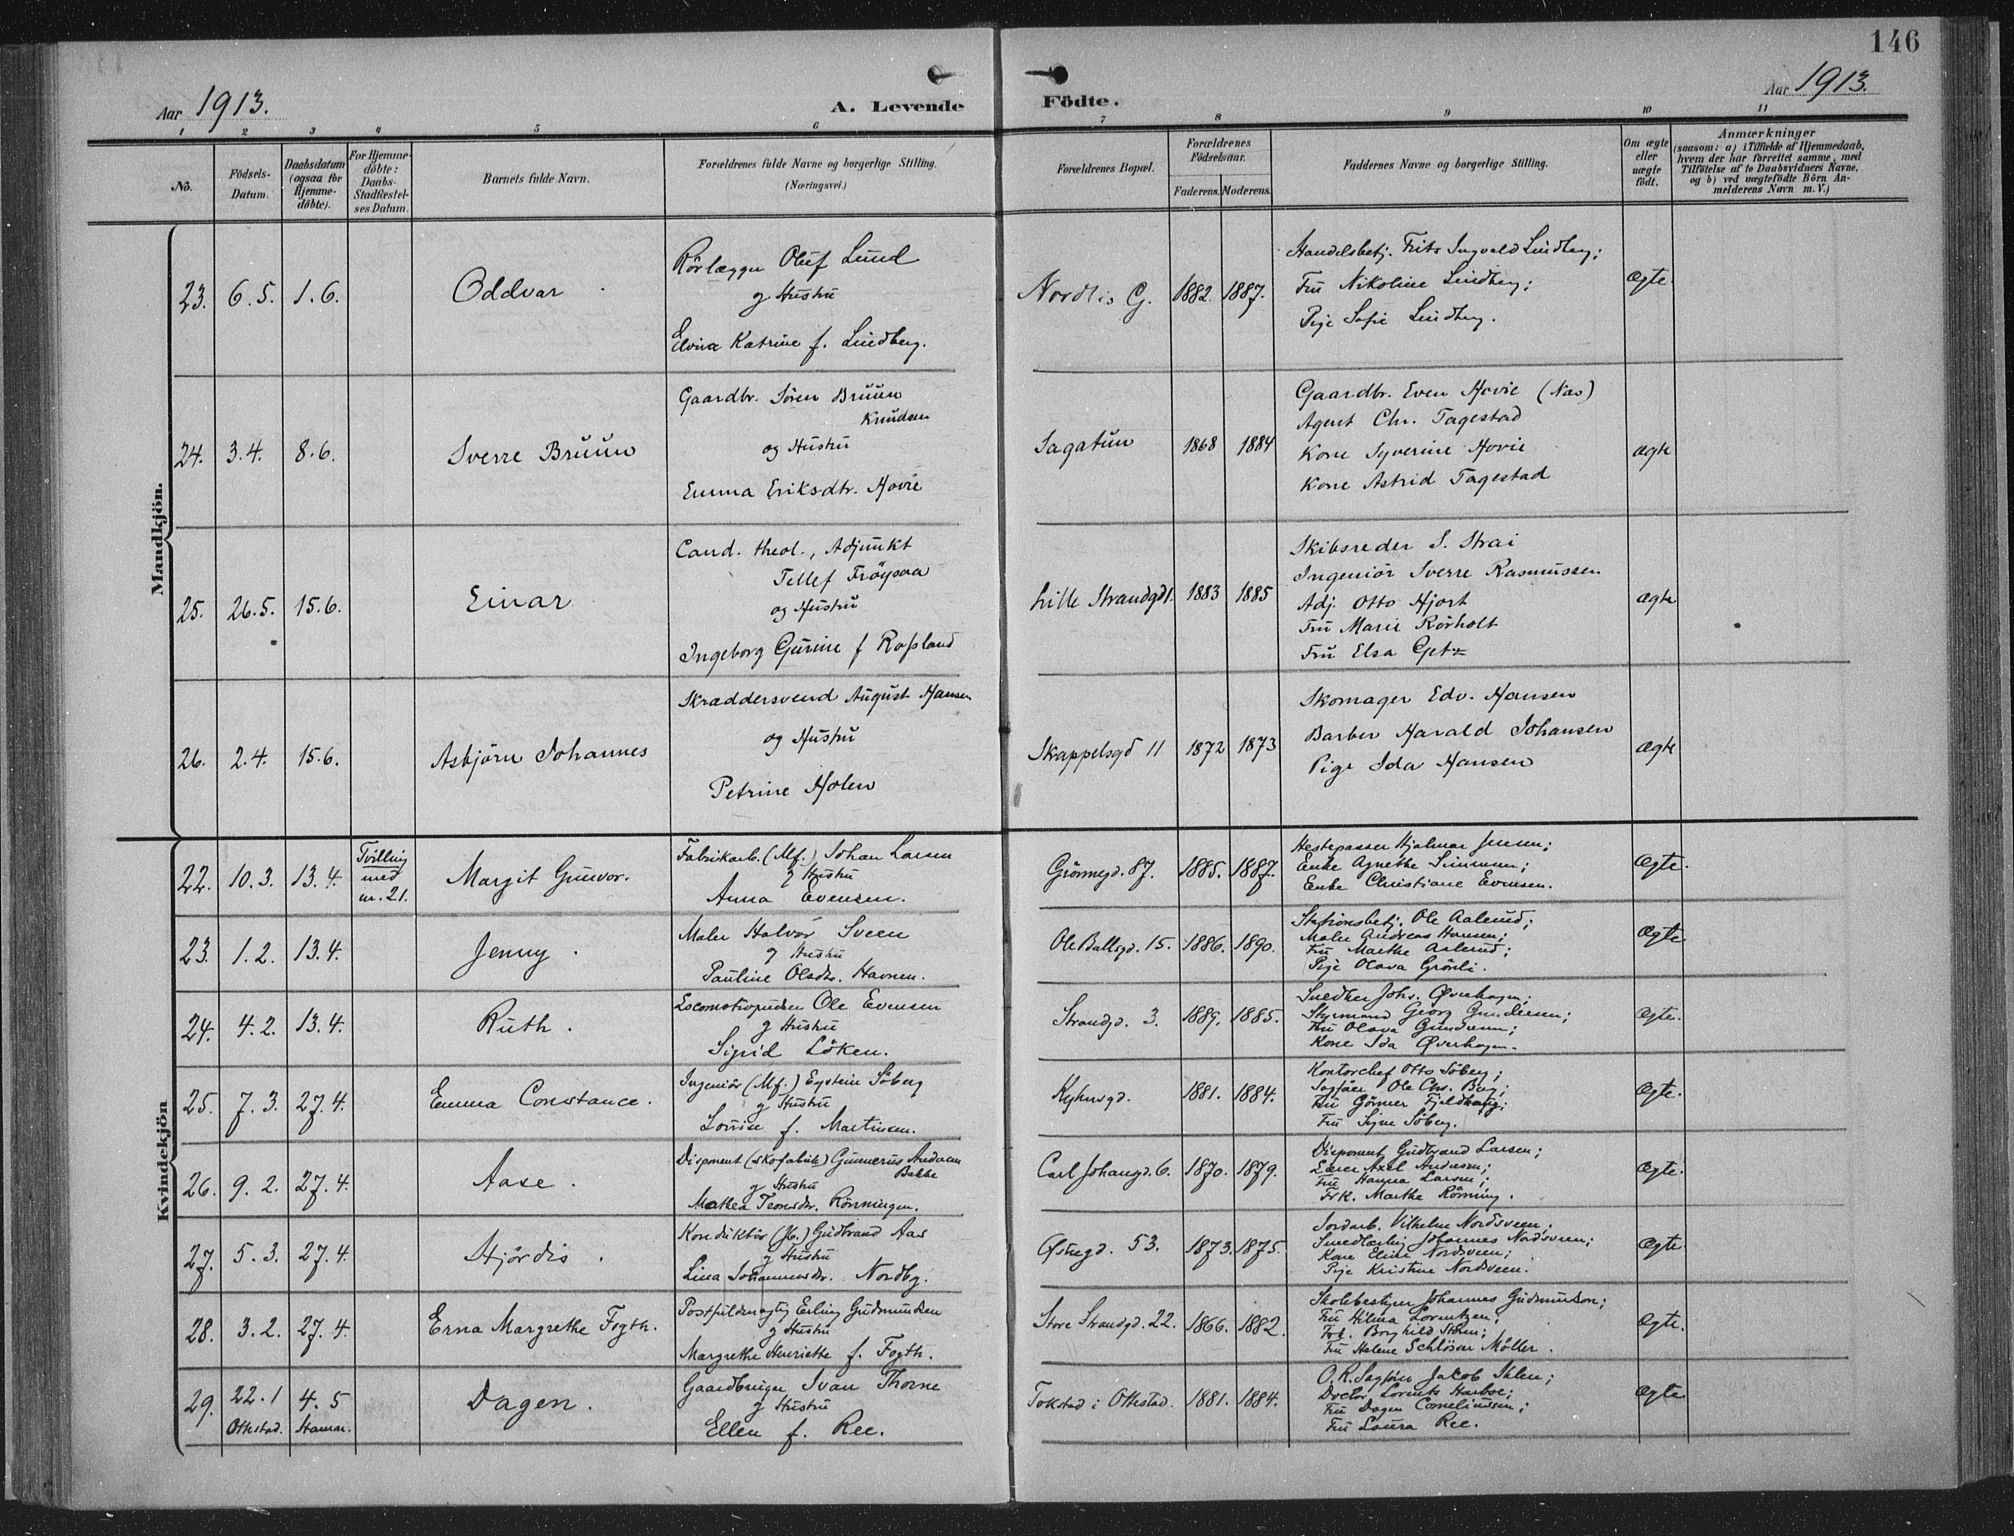 146
Aar 1913.
A. Levende Födte.
Aar 1913.
1 2 3 4 5 6 7 8 9 10 11
No.
Födsels-Datum.
Daabsdatum (ogsaa for Hjemme-döbte).
For Hjemme-döbte: Daabs-Stadfæstel-ses Datum.
Barnets fulde Navn.
Forældrenes fulde Navne og borgerlige Stilling.
(Næringsvei.)
Forældrenes Bopæl.
Forældrenes Födselsaar.
Faderens. Moderens.
Faddernes Navne og borgerlige Stilling.
Om ægte eller uægte födt.
Anmærkninger
(saasom: a) i Tilfælde af Hjemmedaab, hvem der har forrettet samme, med Tilföielse af to Daabsvidners Navne, og b) ved uægtefödte Börn An-melderens Navn m. V.)
Mandkjön.
23. 6.5. 1.6. Oddvar
Rörlægger Oluf Lund
og Hustru
Elvira Katrine f. Lindberg.
Nordlis G. 1882. 1887.
Handelsbetj. Frits Ingvald Lindberg;
Fru Nikoline Lindberg;
Pige Sofie Lindberg.
Ægte.
24. 3.4. 8.6. Sverre Bruun
Gaardbr. Sören Bruun
Knudsen
og Hustru
Emma Eriksdtr. Hovie
Sagatun 1868 1884
Gaardbr. Even Hovie (Nas)
Agent Chr. Fagestad
Kone Syverine Hovie
Kone Astrid Fagestad
ægte
25. 26.5. 15.6. Einar
Cand. theol., Adjunkt
Tellef Fröysaa
og Hustru
Ingeborg Gurine f Rossland
Lille Strandgd 1. 1883 1885
Skibsreder S. Strai
Ingeniör Sverre Rasmussen
Adj. Otto Hjort
Fru Marie Rörholt
Fru Elsa Getz
ægte
26. 2.4. 15.6. Asbjörn Johannes
Skræddersvend August Hansen
og Hustru
Petrine Holen
Skappelsgd 11 1872 1873
Skomager Edv. Hansen
Barber Harald Johansen
Pige Ida Hansen
ægte
Kvindekjön
22. 10.3. 13.4. Tvilling med nr. 21. Margit Gunvor.
Fabrikarb. (Mf.) Johan Larsen
g Hustru
Anna Evensen.
Grönnegd. 87. 1885. 1887.
Hestepasser Hjalmar Jensen;
Enke Agnethe Simensen;
Enke Christiane Evensen.
Ægte.
23. 1.2. 13.4. Jenny.
Maler Halvor Sveen
g Hustru
Pauline Olsdtr. Havnen.
Ole Bullsgd. 15. 1886. 1890.
Stationsbetj. Ole Aalerud;
Maler Andreas Hansen;
Fru Marthe Aalerud;
Pige Olava Grönli.
Ægte.
24. 4.2. 13.4. Ruth.
Locomotivpudser Ole Evensen
g Hustru
Sigrid Löken.
Strandgd. 3. 1889. 1885.
Snedker Johs. Øverhagen;
Styrmand Georg Gundersen;
Fru Olava Gundersen;
Kone Ida Øverhagen.
Ægte.
25. 7.3. 27.4. Emma Constance.
Ingeniör (Mf.) Eystein Söberg
g Hustru
Lovise f. Martinsen.
Kyhnsgd. 1881. 1884.
Kontorchef Otto Söberg;
Sagfører Ole Chr. Berg;
Fru Gönner Fjeldhaug;
Fru Signe Söberg.
Ægte.
26. 9.2. 27.4. Aase.
Disponent (skofabrik) Gunnerus Andersen
Bakke
g Hustru
Mathea Teonsdtr. Rönningen.
Carl Johansgd. 6. 1870. 1879.
Disponent Gudbrand Larsen;
Lærer Axel Andersen;
Fru Hanna Larsen;
Frk. Marthe Rönning.
Ægte.
27. 5.3. 27.4. Hjördis.
Konduktör (Jb.) Gudbrand Aas
g Hustru
Lina Johannesdtr. Nordby.
Østregd. 53. 1873. 1875.
Jordarb. Vilhelm Nordsveen;
Snedkerlærling Johannes Nordsveen;
Kone Eline Nordsveen;
Pige Kristine Nordsveen.
Ægte.
28. 3.2. 27.4. Erna Margrethe Fogth.
Postfuldmægtig Erling Gudmundsen
g Hustru
Margrethe Henriette f. Fogth.
Store Strandgd. 22. 1866. 1882.
Skolebestyrer Johannes Gudmundson;
Fru Hilma Lorentzen;
Frk. Borghild Steen;
Fru Helene Schlösser Möller.
Ægte.
29. 22.1 Ottestad. 4.5 Hamar. Dagen.
Gaardbruger Ivan Thorne
g Hustru
Ellen f. Ree.
Tokstad i Ottestad. 1881. 1884.
O.R.Sagförer Jakob Ihlen;
Doctor Lorentz Harboe;
Fru Dagen Corneliussen;
Fru Laura Ree.
Ægte.